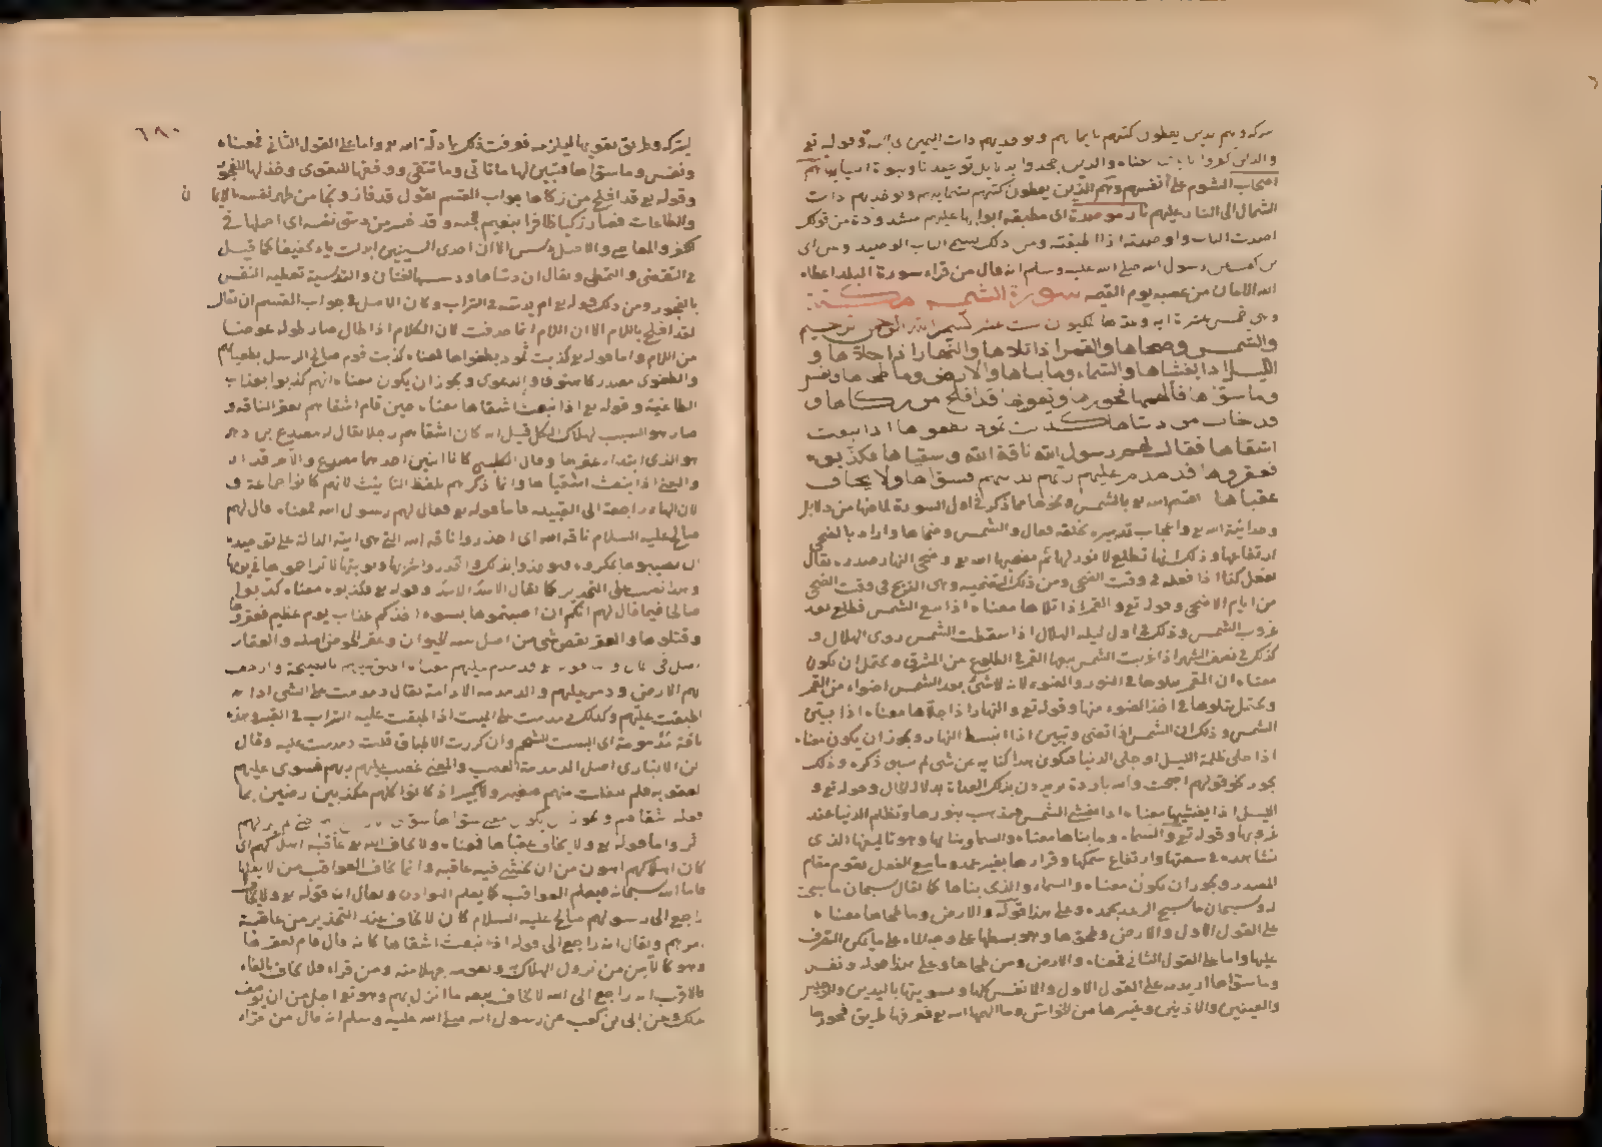 والذين كفروا بآياتنا معناه والذين جحدوا بدلايل توحيدنا ونبوة انبيايناهم
اصحاب الشوم على انفسهم وهم الذين يعطون كتبهم بشمايلهم ويوخذ بهم ذات
الشمال الى النار عليهم نار موصدة اى مطبقة ابوابها عليهم مشدودة من قولك
اصدت الباب واوصدته اذا اطبقته ومن ذلك
رسول الله صلى الله عليه وسلم انه قال من قراء سورة البلد اعطاه
الله الامان من غضبه يوم القيمة سورة الشمس مكية
وهى خمس عشرة اية وعندها المكيون ست عشر بسم الله الرحمن الرحيم
والشمس وضحاها والقمر اذا تلاها والنهار اذا جلاها و
الليل اذا يغشاها والسماء وما بناها والارض وما طحاها ونفس
وما سوّاها فألهمها فجورها وتقواها قد افلح من زكاها و
قد خاب من دسّاها كذبت ثمود بطغواها اذ انبعث
اشقاها فقال لهم رسول الله ناقة الله وسقياها فكذبوه
فعقروها فدمدم عليهم ربهم بذنبهم فسوّاها ولا يخاف
عقباها اقسم الله تع بالشمس ونحوها مما ذكر فى اول السورة لما فيها من دلايل
وحدانية الله تع وعجايب تدبيره لخلقه فقال والشمس وضحاها واراد بالضحى
ارتفاعها وذلك انها تطلع لا نور لها ثم يضيها الله تع وضحى النهار صدره يقال
نفعل كذا اذا فعله فى وقت الضحى ومن ذلك التضحية وهى الذبح فى وقت الضحى
من ايام الاضحى وقوله تع والقمر اذا تلاها معناه اذا تبع الشمس فطلع بعد
غروب الشمس وذلك فى اول ليلة الهلال اذا سقطت الشمس روى الهلال و
كذلك فى نصف الشهر اذا غربت الشمس يتبعها القمر فى الطلوع من المشرق ويحتمل ان يكون
معناه ان القمر يتلوها فى النور والضوء لانه لا شئ بعد الشمس اضواء من القمر
ويحتمل يتلوها فى اخذ الضوء منها وقوله تع والنهار اذا جلاها معناه اذا بيّن
الشمس وذلك ان الشمس اذا تضى وتبين اذا انبسط النهار ويجوز ان يكون معناه
اذا جلى ظلمة الليل او جلى الدنيا فيكون هذا كناية عن شى لم يسبق ذكره وذلك
يجوز كقولهم اصبحت والله باردة يريدون بذلك الغداة بدلالة الحال وقوله تع و
الليل اذا يغشيها معناه اذا يغشى الشمس فيذهب بنورها وتظلم الدنيا عند
غروبها وقوله تع والسماء وما بناها معناه والسما وبنايها وهو تاليفها الذى
نشاهده فى سعتها وارتفاع سمكها وقرارها بغير عمد وما مع الفعل يقوم مقام
المصدر ويجوز ان يكون معناه والسماء والذى بناها كما يقال سبحان ما سبحت
له وسبحان ما يسبح الرعد بحمده وعلى هذا قوله والارض وما طحاها معناه
على القول الاول والارض وطحوها وهو بسطها على وجه الماء على ما يمكن التصرف
عليها واما على القول الثانى فمعناه والارض ومن طحاها وعلى هذا قوله ونفس
وما سوّاها اريد به على القول الاول والانفس كلها وتسويتها باليدين والرجلين
والعينين والاذنين وغيرها من الحواس وما الهمها الله تع فعرفها طريق فجورها
٦٨٠
ليتركه وطريق تقويها ليلزمه فعرفت ذلك بادلّة الله تع واما على القول الثانى فمعناه
ونفس وما سوّاها فبيّن لها ما تاتى وما تتقى ووفقها للتقوى وخذلها للفجور
وقوله تع قد افلح من زكاها جواب القسم يقول قد فاز ونجا من طهر نفسه بالايمان
والطاعات فصار زكيا ظافرا بنعيم الجنة وقد خسر من دسّى نفسه اى اخملها فى
الكفر والمعاصى والاصل دسس الا ان احدى السينين ابدلت ياء تخفيفا كما قيل
فى التقضى والتمطى ويقال ان دسّاها ودسسها لغتان والتدسية تغطية النفس
بالفجور ومن ذلك قوله تع ام يدسه فى التراب وكان الاصل فى جواب القسم ان يقال
لقد افلح باللام الا ان اللام انما حذفت لان الكلام اذا طال صار طوله عوضا
من اللام واما قوله تع كذبت ثمود بطغواها فمعناه كذبت قوم صالح الرسل بطغيانهم
والطغوى مصدر كالتقوى والدعوى ويجوز ان يكون معناه انهم كذبوا بعذاب
الطاغية وقوله تع اذ انبعث اشقاها معناه حين قام اشقاهم بعقر الناقة و
صار هو السبب لهلاك الكل قيل انه كان اشقاهم رجلا يقال له مصدع بن دهر
هو الذى ابتداء عقرها وقال الكلبى كانا اثنين احدهما مصدع والاخر قدار
والمعنى اذ انبعث اشقياها وانما ذكرهم بلفظ التانيث لانهم كانوا جماعة و
لان الهاء راجعة الى القبيلة فاما قوله تع فقال لهم رسول الله فمعناه قال لهم
صالح عليه السلام ناقة الله اى احذروا ناقة الله التى هى اية الدالة على توحيده
ان تصيبوها بمكروه وسوء وذلك واحذروا شربها ونوبتها لا تزاحموها فى يومها
وهذا نصب على التحذير كما يقال الاسد الاسد وقوله تع فكذبوه معناه كذبوا
صالحا فيما قال لهم انكم ان اصبتموها بسوء اخذكم عذاب يوم عظيم فعقروها
وقتلوها والعقر نقص شى من اصل بنية الحيوان وعقر الحوض اصله والعقار
اصل المال وقوله تع فدمدم عليهم معناه بالصيحة وارجف
بهم الارض ودمر عليهم والدمدمة الادامة يقال دمدمت على الشى اذا
اطبقت عليهم وكذلك دمدمت على الميت اذا اطبقت عليه التراب فى القبر وهذه
ناقة مدمومة اى البست الشحم وان كررت الاطباق قلت دمدمت عليه وقال
ابن الانبارى اصل الدمدمة الغضب والمعنى غضب عليهم ربهم فسوى عليهم
العقوبة فلم يفلت منهم صغير ولا كبير اذ كانوا كلهم مكذبين رضين بما
فعله شقاهم ويجوز ان يكون معنى سوّاها
واما قوله تع ولا يخاف عقباها فمعناه ولا يخاف الله تع عاقبة اهلاكهم اى
كان اهلاكهم اهون من ان يخشى فيه عاقبة وانما يخاف العواقب من لا يعلمها
فاما الله سبحانه فيعلم العواقب كما يعلم البوادى ويقال ان قوله تع ولا يخاف
راجع الى رسولهم صالح عليه السلام كان لا يخاف عند التحذير من عاقبة
امرهم ويقال انه راجع الى قوله اذ انبعث اشقاها كانه قال قام لعقرها
وهو كالآمن من نزول الهلاك به وبقومه جهلا منه ومن قراء فلا يخاف بالفاء
فالاقرب انه راجع الى الله لا يخاف تبعة ما انزل بهم وهو تع اجل من ان يوصف
بذلك وعن ابى بن كعب عن رسول الله صلى الله عليه وسلم انه قال من قراء